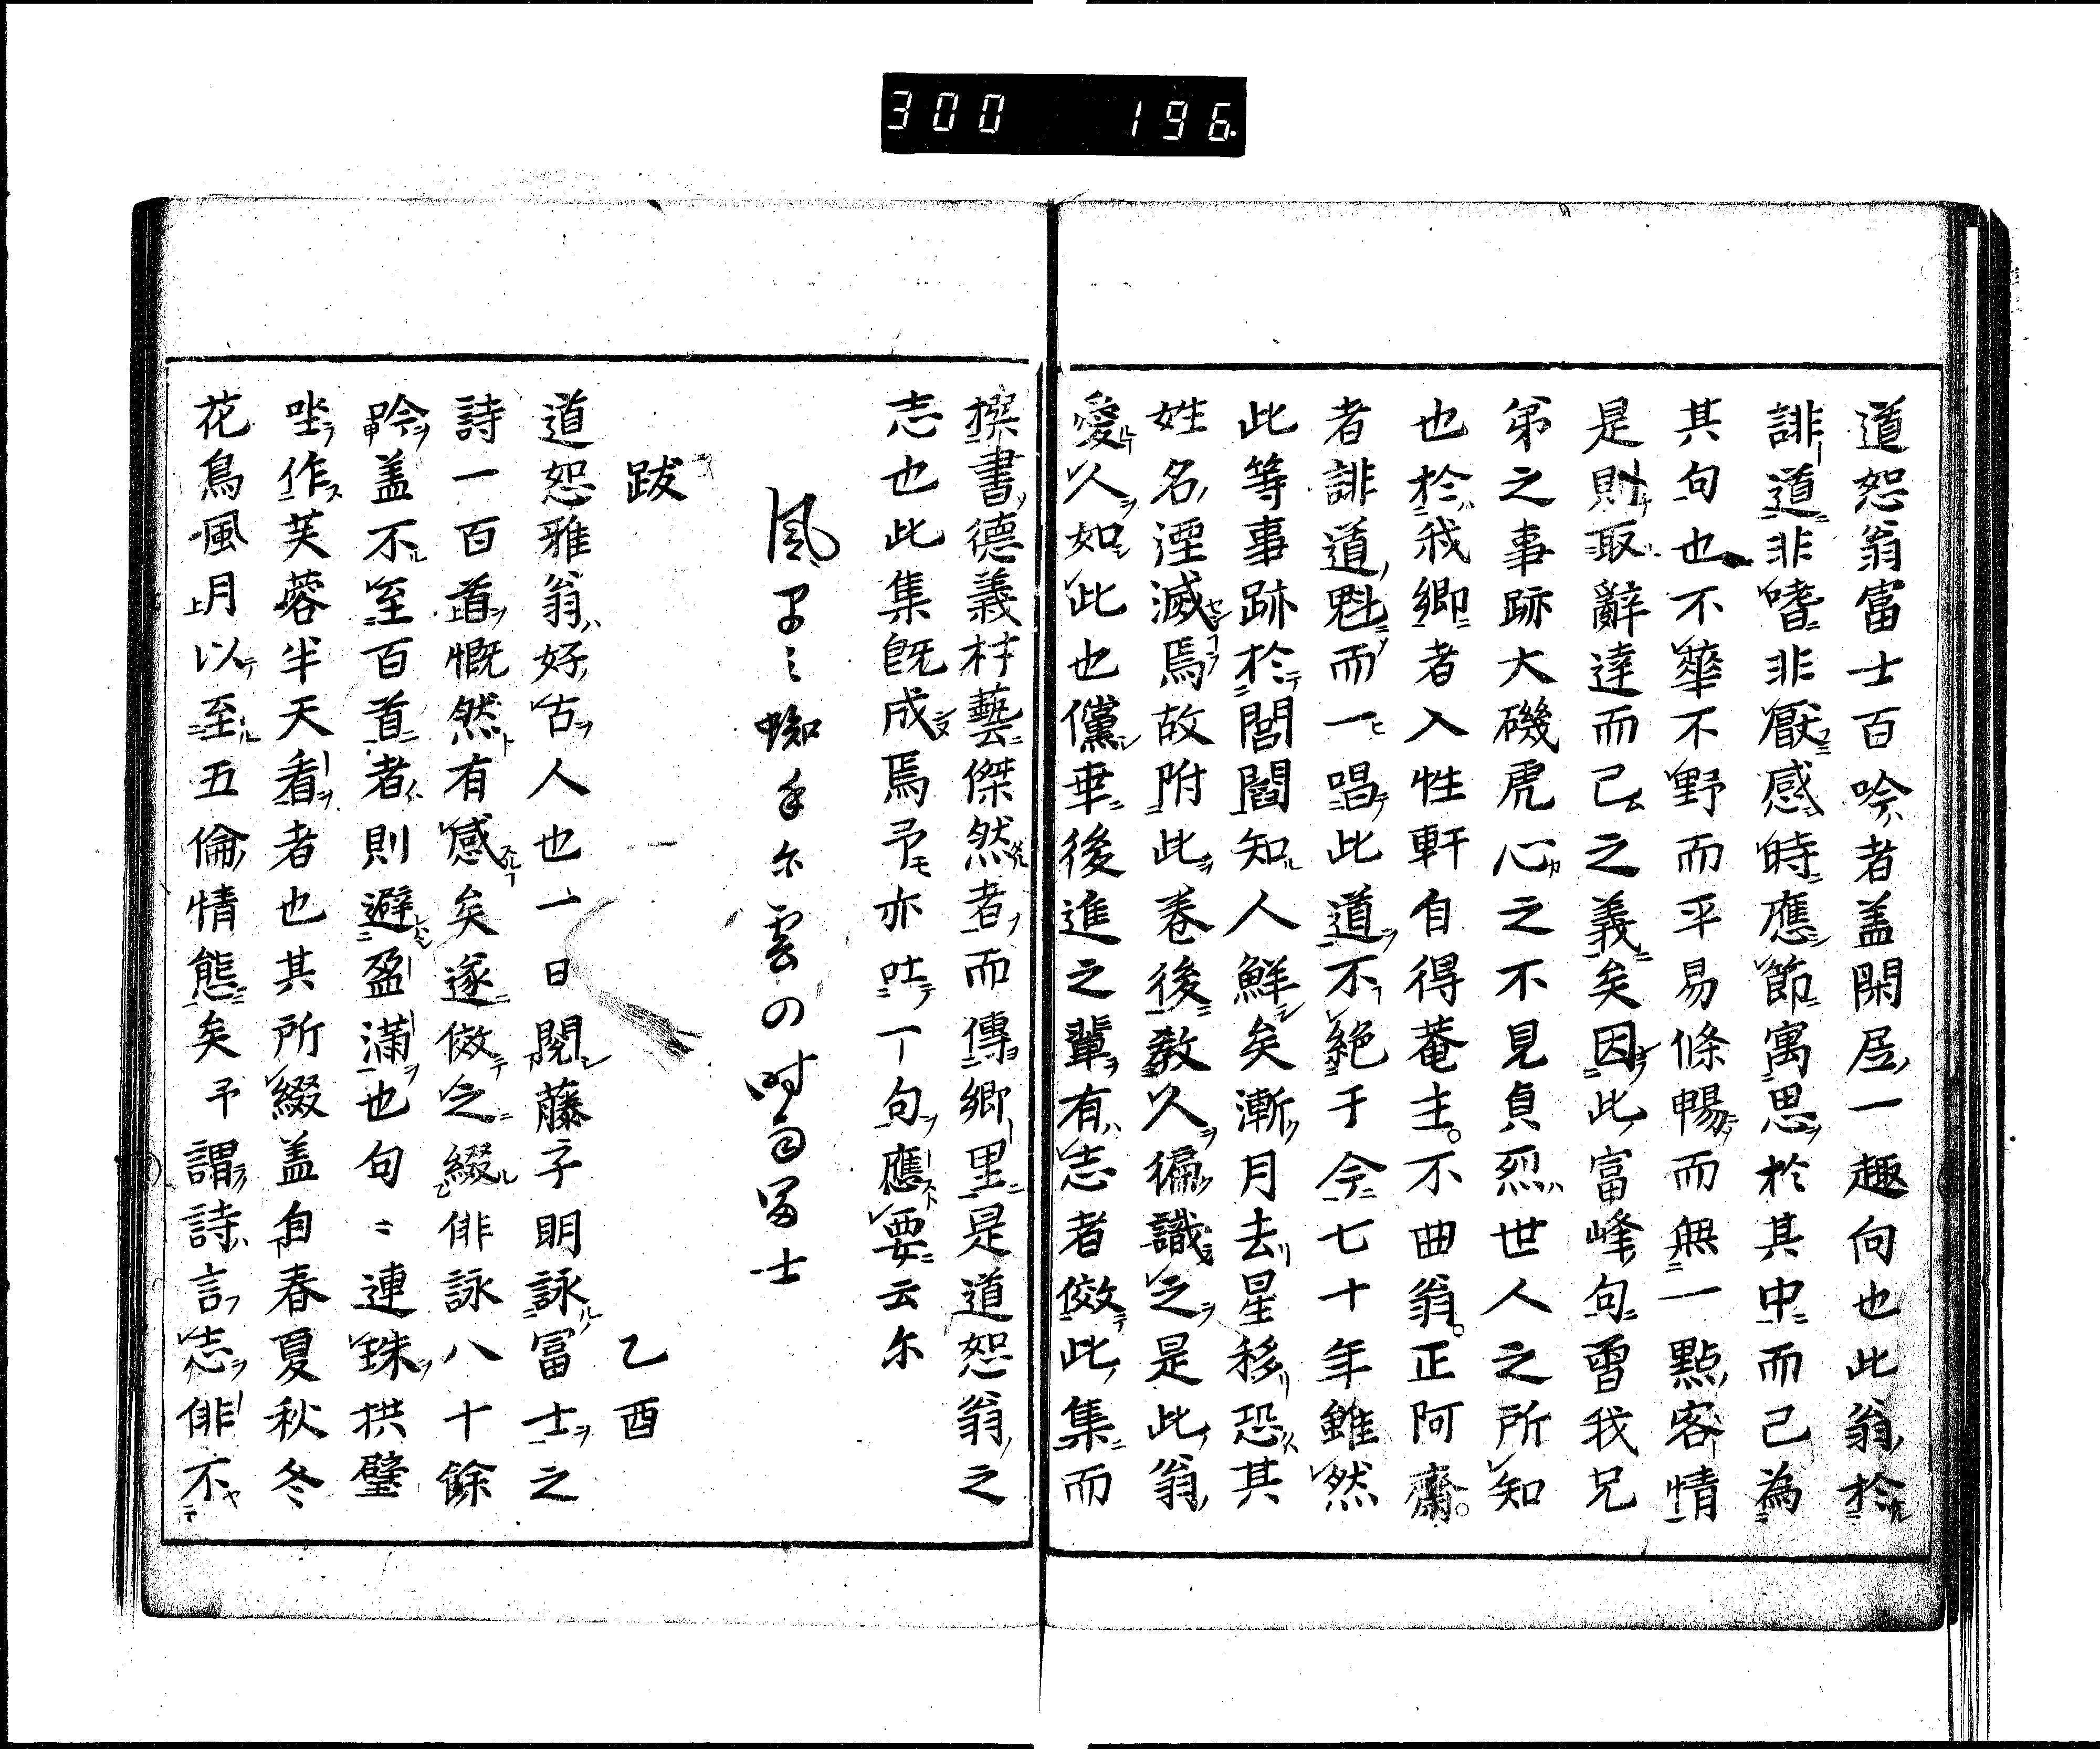 300 196
道恕翁富士百吟者盖閑居一趣向也此翁於
誹道非嗜非厭感時應節寓思於其中而己為
其句也不華不野而平易條暢而無一點客情
是則取辭達而己之義矣因此富峰句曾我兄
弟之事跡大磯虎心之不見貞烈世人之所知
也於我郷者入性軒自得菴主。不曲翁。正阿齋。
者誹道魁而一唱此道不絶于今七十年雖然
此等事跡於閭閻知人鮮矣漸月去星移恐其
姓名湮滅焉故附此巻後教久徧識之是此翁
愛人如此也儻幸後進之輩有志者傚此集而
撰書德義材藝傑然者而傳郷里是道恕翁之
志也此集既成焉予亦吐一句應要云尓
雲の时
跋 乙酉
道恕雅翁好古人也一日閲藤子明詠冨士之
詩一百首慨然有感矣遂傚之綴俳詠八十餘
吟盖不至百首者則避盈滿也句〻連珠拱璧
坐作芙蓉半天看者也其所綴盖自春夏秋冬
花鳥風月以至五倫情態矣予謂詩言志俳不